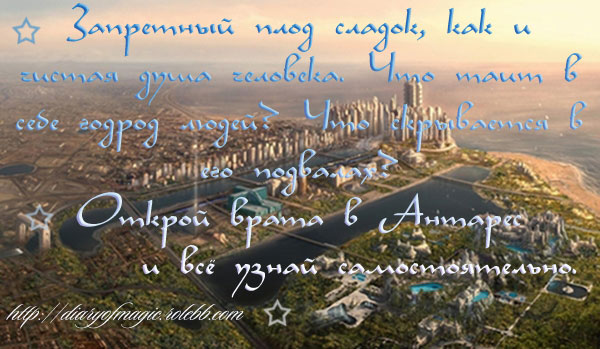 Запретный плод сладок, как и
чистая душа человека. Что таит в
себе годрод людей? Что скрывается в
его подвалах?
Открой врата в Антарес
и всё узнай самостоятельно.
http://diaryofmagic.rolebb.com